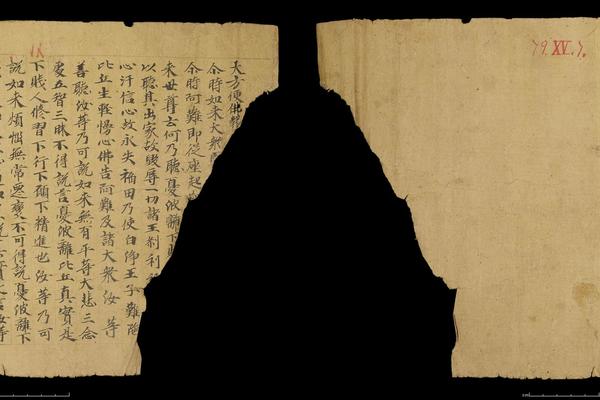 大方便佛報
尒時如來大衆
尒時阿難即從座起
來世尊云何乃聽憂波離下
以聽其出家故毀辱一切諸王刹利
心汙信心故永失福田乃使白淨王子難陁
比丘生輕慢心佛告阿難及諸大衆汝等
善聽汝等乃可說如來無有平等大悲三念
處五智三昧不得說言憂波離比丘真實是
下賤人修習下行下願下精進也汝等乃可
說如來煩惱無常更變不可得說憂波離下
79.XV.7.